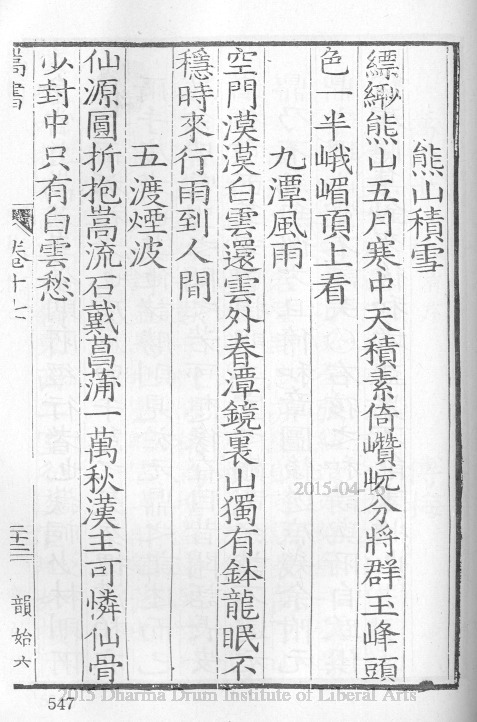 熊山積雪
縹緲熊山五月寒中天積素倚巑岏分將群玉峰頭
色一半峨嵋頂上看
九潭風雨
空門漠漠白雲還雲外春潭鏡裏山獨有鉢龍眠不
穩時來行雨到人間
五渡煙波
仙源圓折抱嵩流石戴菖蒲一萬秋漢主可憐仙骨
少封中只有白雲愁
嵩書
卷十七
二十二
韻始六
547
2015-04-16
2015 Dharma Drum Institute of Liberal Arts